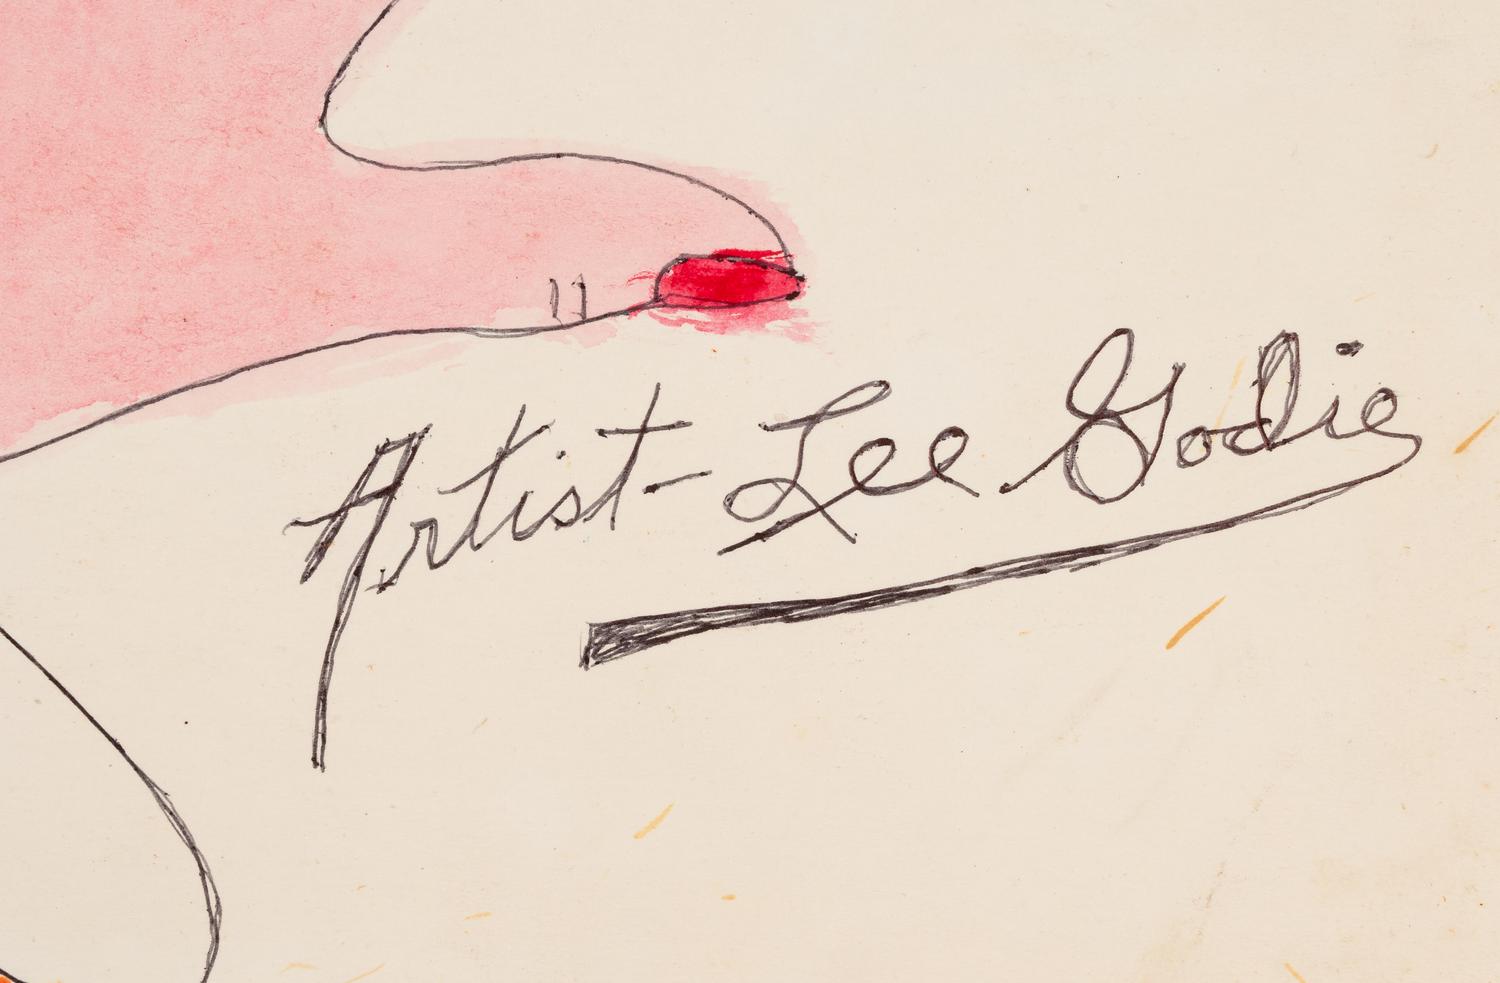 Artist- Lee Godie